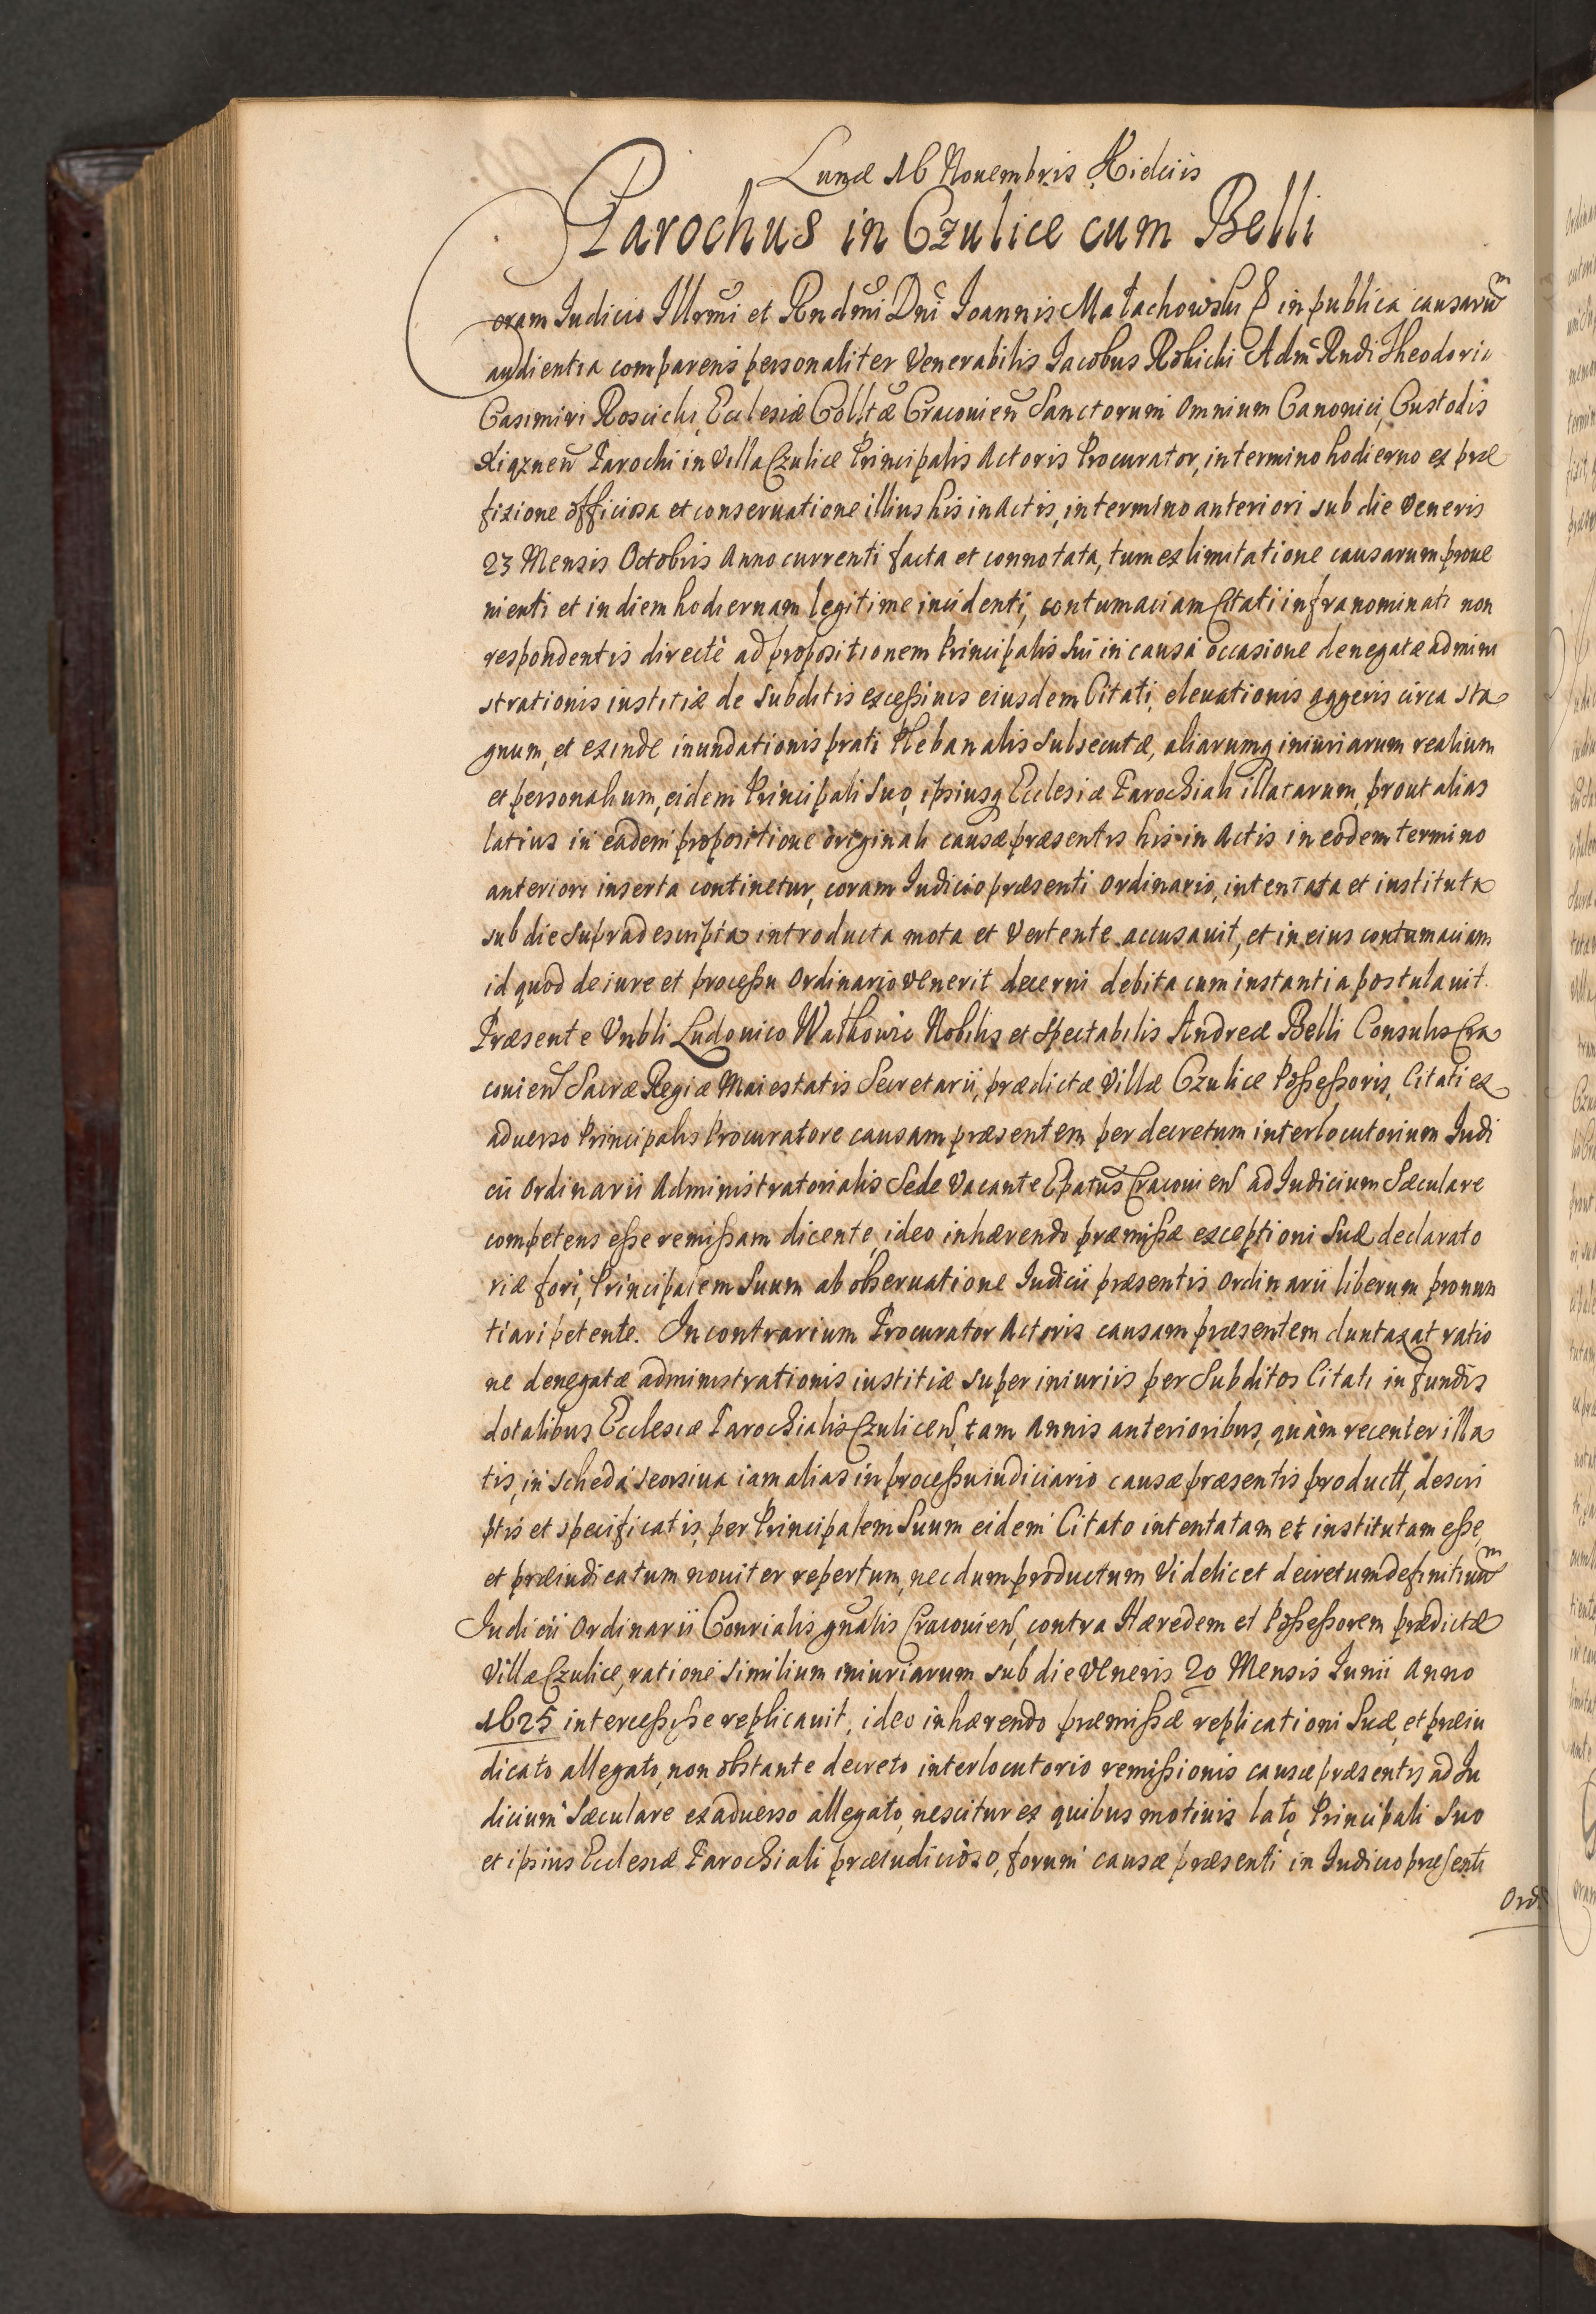 Lunæ 16 Nouembris Kielciis
Parochus in Czulice cum Belli
Coram Iudicio Illrmi et Rndmi Dni Ioannis Małachowski & in publica causarum
audientia comparens personaliter Venerabilis Iacobus Robicki Adm Rndi Theodorici
Casimiri Roscicki, Ecclesiæ Colltæ Cracouien Sanctorum Omnium Canonici, Custodis
Xiąznen Parochi in Villa Czulice Principalis Actoris Procurator, in termino hodierno ex præ
fixione officiosa et conseruatione illius his in Actis, in termino anteriori sub die Veneris
23 Mensis Octobris Anno currenti facta et connotata, tum ex limitatione causarum proue
nienti et in diem hodiernam legitime incidenti, contumaciam Citati infranominati non
respondentis directè ad propositionem Principalis Sui in causa occasione denegatæ admini
strationis iustitiæ de Subditis excessiuis eiusdem Citati, eleuationis aggeris circa sta
gnum, et exinde inundationis prati Plebanalis Subsecutæ, aliarumq iniuriarum realium
et personalium, eidem Principali Suo, ipsiusq Ecclesiæ Parochiali illatarum, prout alias
latius in eadem propositione originali causæ præsentis his in Actis in eodem termino
anteriori inserta continetur, coram Iudicio præsenti Ordinario, intentata et instituta
sub die Supradescripta introducta mota et Vertente accusauit, et in eius contumaciam
id quod de iure et processu Ordinario venerit decerni debita cum instantia postulauit.
Præsente Vnbli Ludouico Wathowic Nobilis et Spectabilis Andreæ Belli Consulis Cra
couien Sacræ Regiæ Maiestatis Secretarii, prædictæ Villæ Czulice Possessoris, Citati ex
aduerso Principalis Procuratore causam præsentem per decretum interlocutorium Iudi
cii Ordinarii Administratorialis Sede Vacante Epatus Cracouien ad Iudicium Sæculare
competens esse remissam dicente, ideo inhærendo præmissæ exceptioni Suæ declarato
riæ fori, Principalem Suum ab obseruatione Iudicii præsentis Ordinarii liberum pronun
tiari petente. In contrarium Procurator Actoris causam præsentem duntaxat ratio
ne denegatæ administrationis iustitiæ super iniuriis per Subditos Citati in fundis
dotalibus Ecclesiæ Parochialis Czulicen, tam Annis anterioribus, quàm recenter illa
tis, in scheda seorsiua iam alias in processu iudiciario causæ præsentis product, descri
ptis et specificatis, per Principalem Suum eidem Citato intentatam et institutam esse,
et præiudicatum nouiter repertum, necdum productum Videlicet decretum definitiuum
Iudicii Ordinarii Consrialis gnalis Cracouien, contra Hæredem et Possessorem prædictæ
Villæ Czulice, ratione similium iniuriarum sub die Veneris 20 Mensis Iunii Anno
1625 intercessisse replicauit, ideo inhærendo præmissæ replicationi Suæ, et præiu
dicato allegato, non obstante decreto interlocutorio remissionis causæ præsentis ad Iu
dicium Sæculare ex aduerso allegato, nescitur ex quibus motiuis lato, Principali Suo
et ipsius Ecclesiæ Parochiali præiudicioso, forum causæ præsenti in Iudicio præsenti
Ord